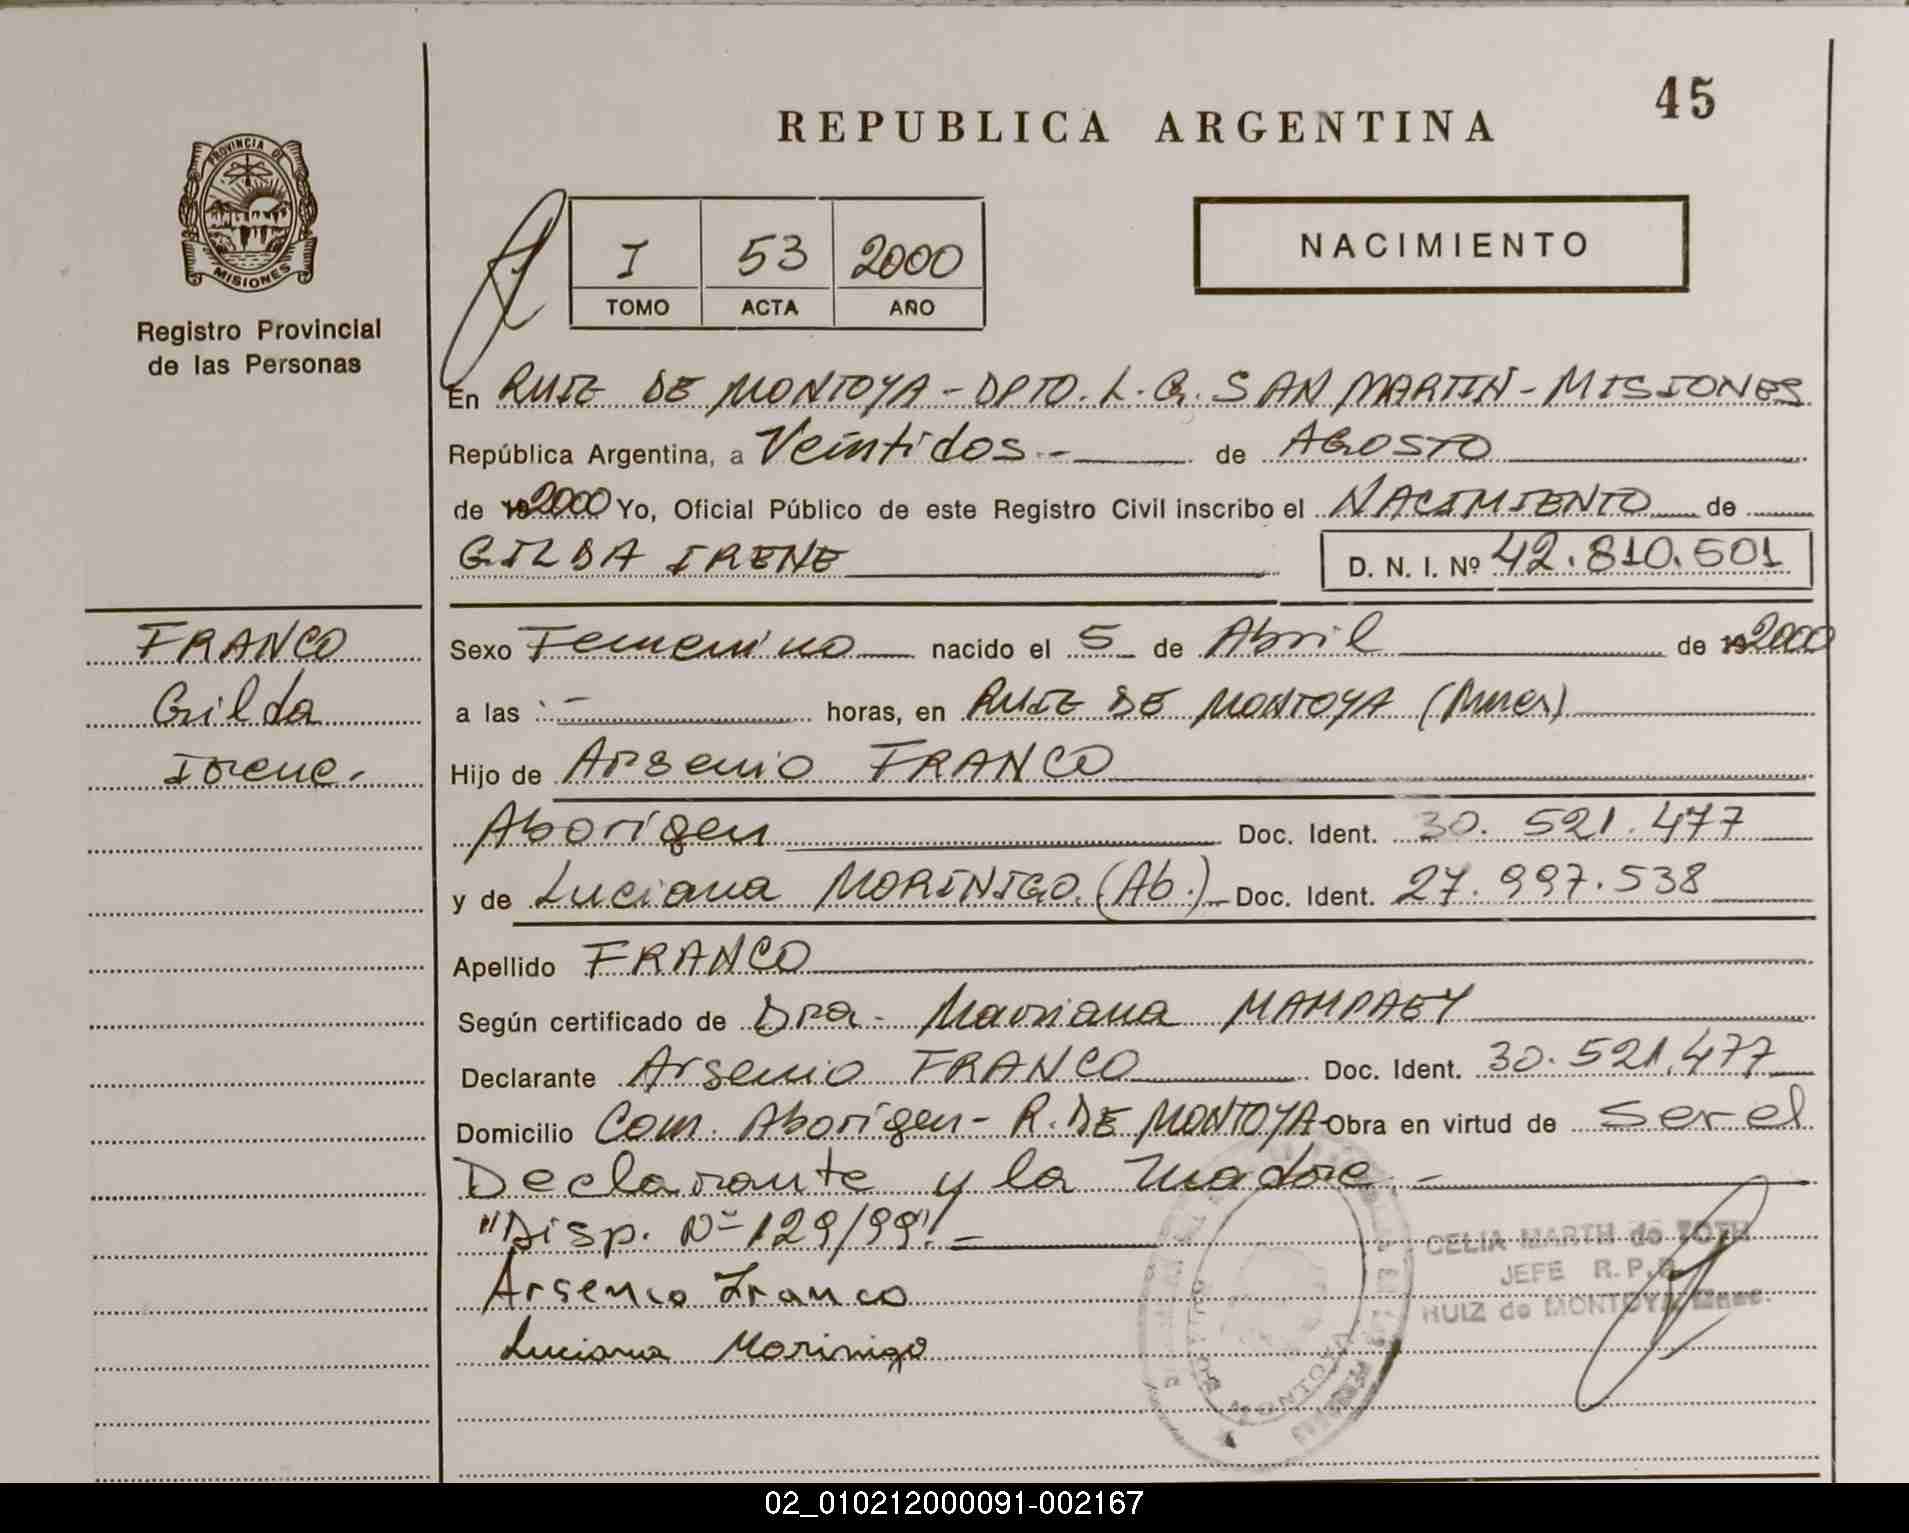 45
REPUBLICA ARGENTINA
PROVINCIA DE
MISIONES
Registro Provincial
de las Personas
I 53 2000
TOMO ACTA AÑO
NACIMIENTO
En RUIZ DE MONTOYA - DPTO. L. G. SAN MARTIN - MISIONES
República Argentina, a Veintidos.- de AGOSTO
de 2000 Yo, Oficial Público de este Registro Civil inscribo el NACIMIENTO de
GILDA IRENE D. N. I. Nº 42.810.501
FRANCO
Gilda
Irene.
Sexo Femenino nacido el 5 de Abril de 2000
a las - horas, en RUIZ DE MONTOYA (Mnes)
Hijo de Arsenio FRANCO
Aborigen Doc. Ident. 30.521.477
y de Luciana MORINIGO. (Ab.) Doc. Ident. 27.997.538
Apellido FRANCO
Según certificado de Dra. Mariana MAMPAEY
Declarante Arsenio FRANCO Doc. Ident. 30.521.477
Domicilio Com. Aborigen - R. DE MONTOYA Obra en virtud de ser el
Declarante y la madre. -
"Disp. Nº 129/99". -
Arsenio Franco
Luciana Morinigo
CELIA MARTH de TOTH
JEFE R.P.P.
RUIZ de MONTOYA Mnes.
MONTOYA
02_010212000091-002167